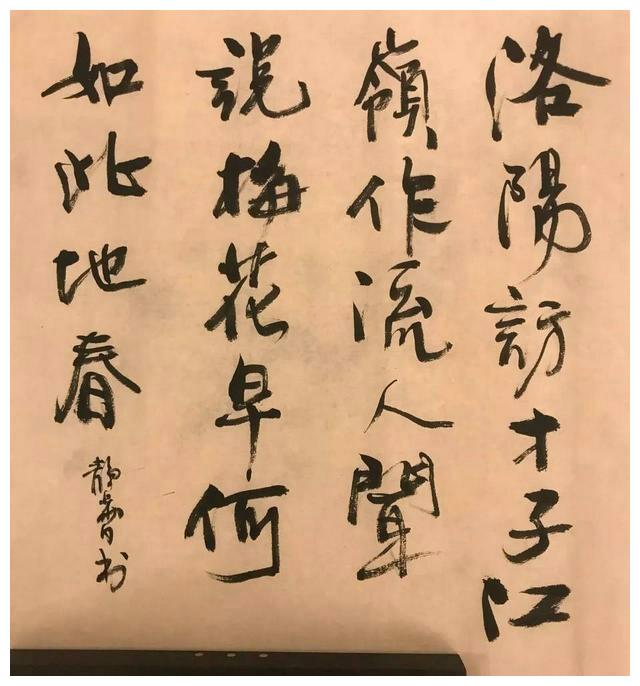 洛陽訪才子江
嶺作流人聞
説梅花早何
如此地春
書